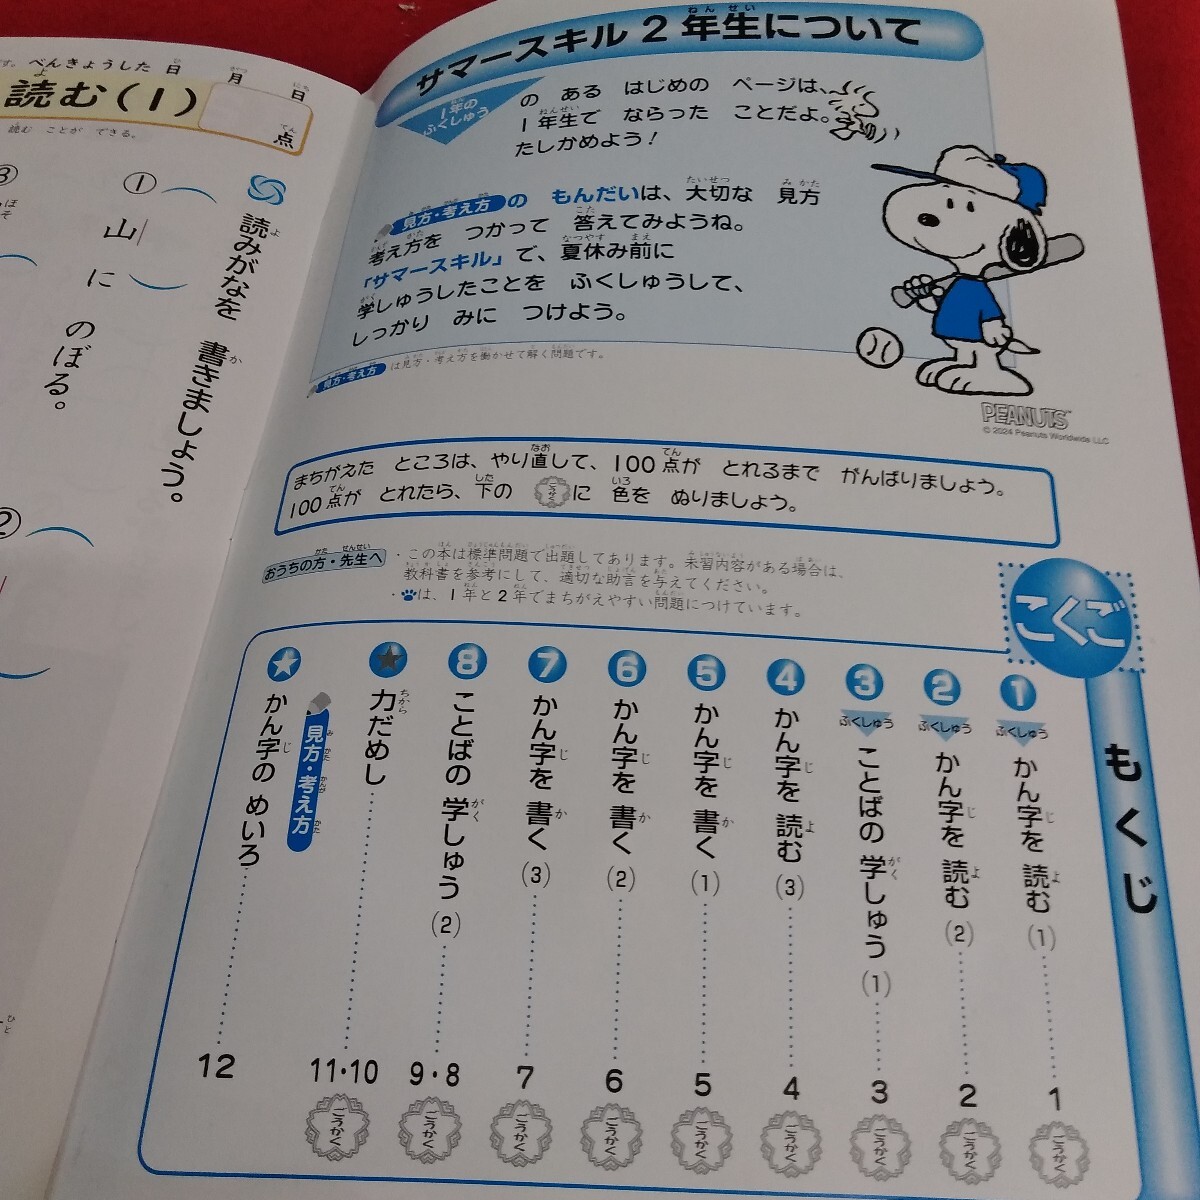 サマースキル2年生について
1年の
ふくしゅう
の ある はじめの ページは、
1年生で ならった ことだよ。
たしかめよう!
見方・考え方 の もんだいは、大切な 見方
考え方を つかって 答えてみようね。
「サマースキル」で、夏休み前に
学しゅうしたことを ふくしゅうして、
しっかり みに つけよう。
見方・考え方 は見方・考え方を働かせて解く問題です。
PEANUTS
© 2024 Peanuts Worldwide LLC
まちがえた ところは、やり直して、100点が とれるまで がんばりましょう。
100点が とれたら、下の ごうかくに 色を ぬりましょう。
おうちの方・先生へ
・この本は標準問題で出題してあります。未習内容がある場合は、
教科書を参考にして、適切な助言を与えてください。
・は、1年と2年でまちがえやすい問題につけています。
こくご
もくじ
1 ふくしゅう かん字を 読む(1) 1 ごうかく
2 ふくしゅう かん字を 読む(2) 2 ごうかく
3 ふくしゅう ことばの 学しゅう(1) 3 ごうかく
4 かん字を 読む(3) 4 ごうかく
5 かん字を 書く(1) 5 ごうかく
6 かん字を 書く(2) 6 ごうかく
7 かん字を 書く(3) 7 ごうかく
8 ことばの 学しゅう(2) 9・8 ごうかく
★ 力だめし 11・10 ごうかく
見方・考え方
★ かん字の めいろ 12
べんきょうした日 月 日
読む(1)
点
読む ことが できる。
読みがなを 書きましょう。
① 山に のぼる。
②
③